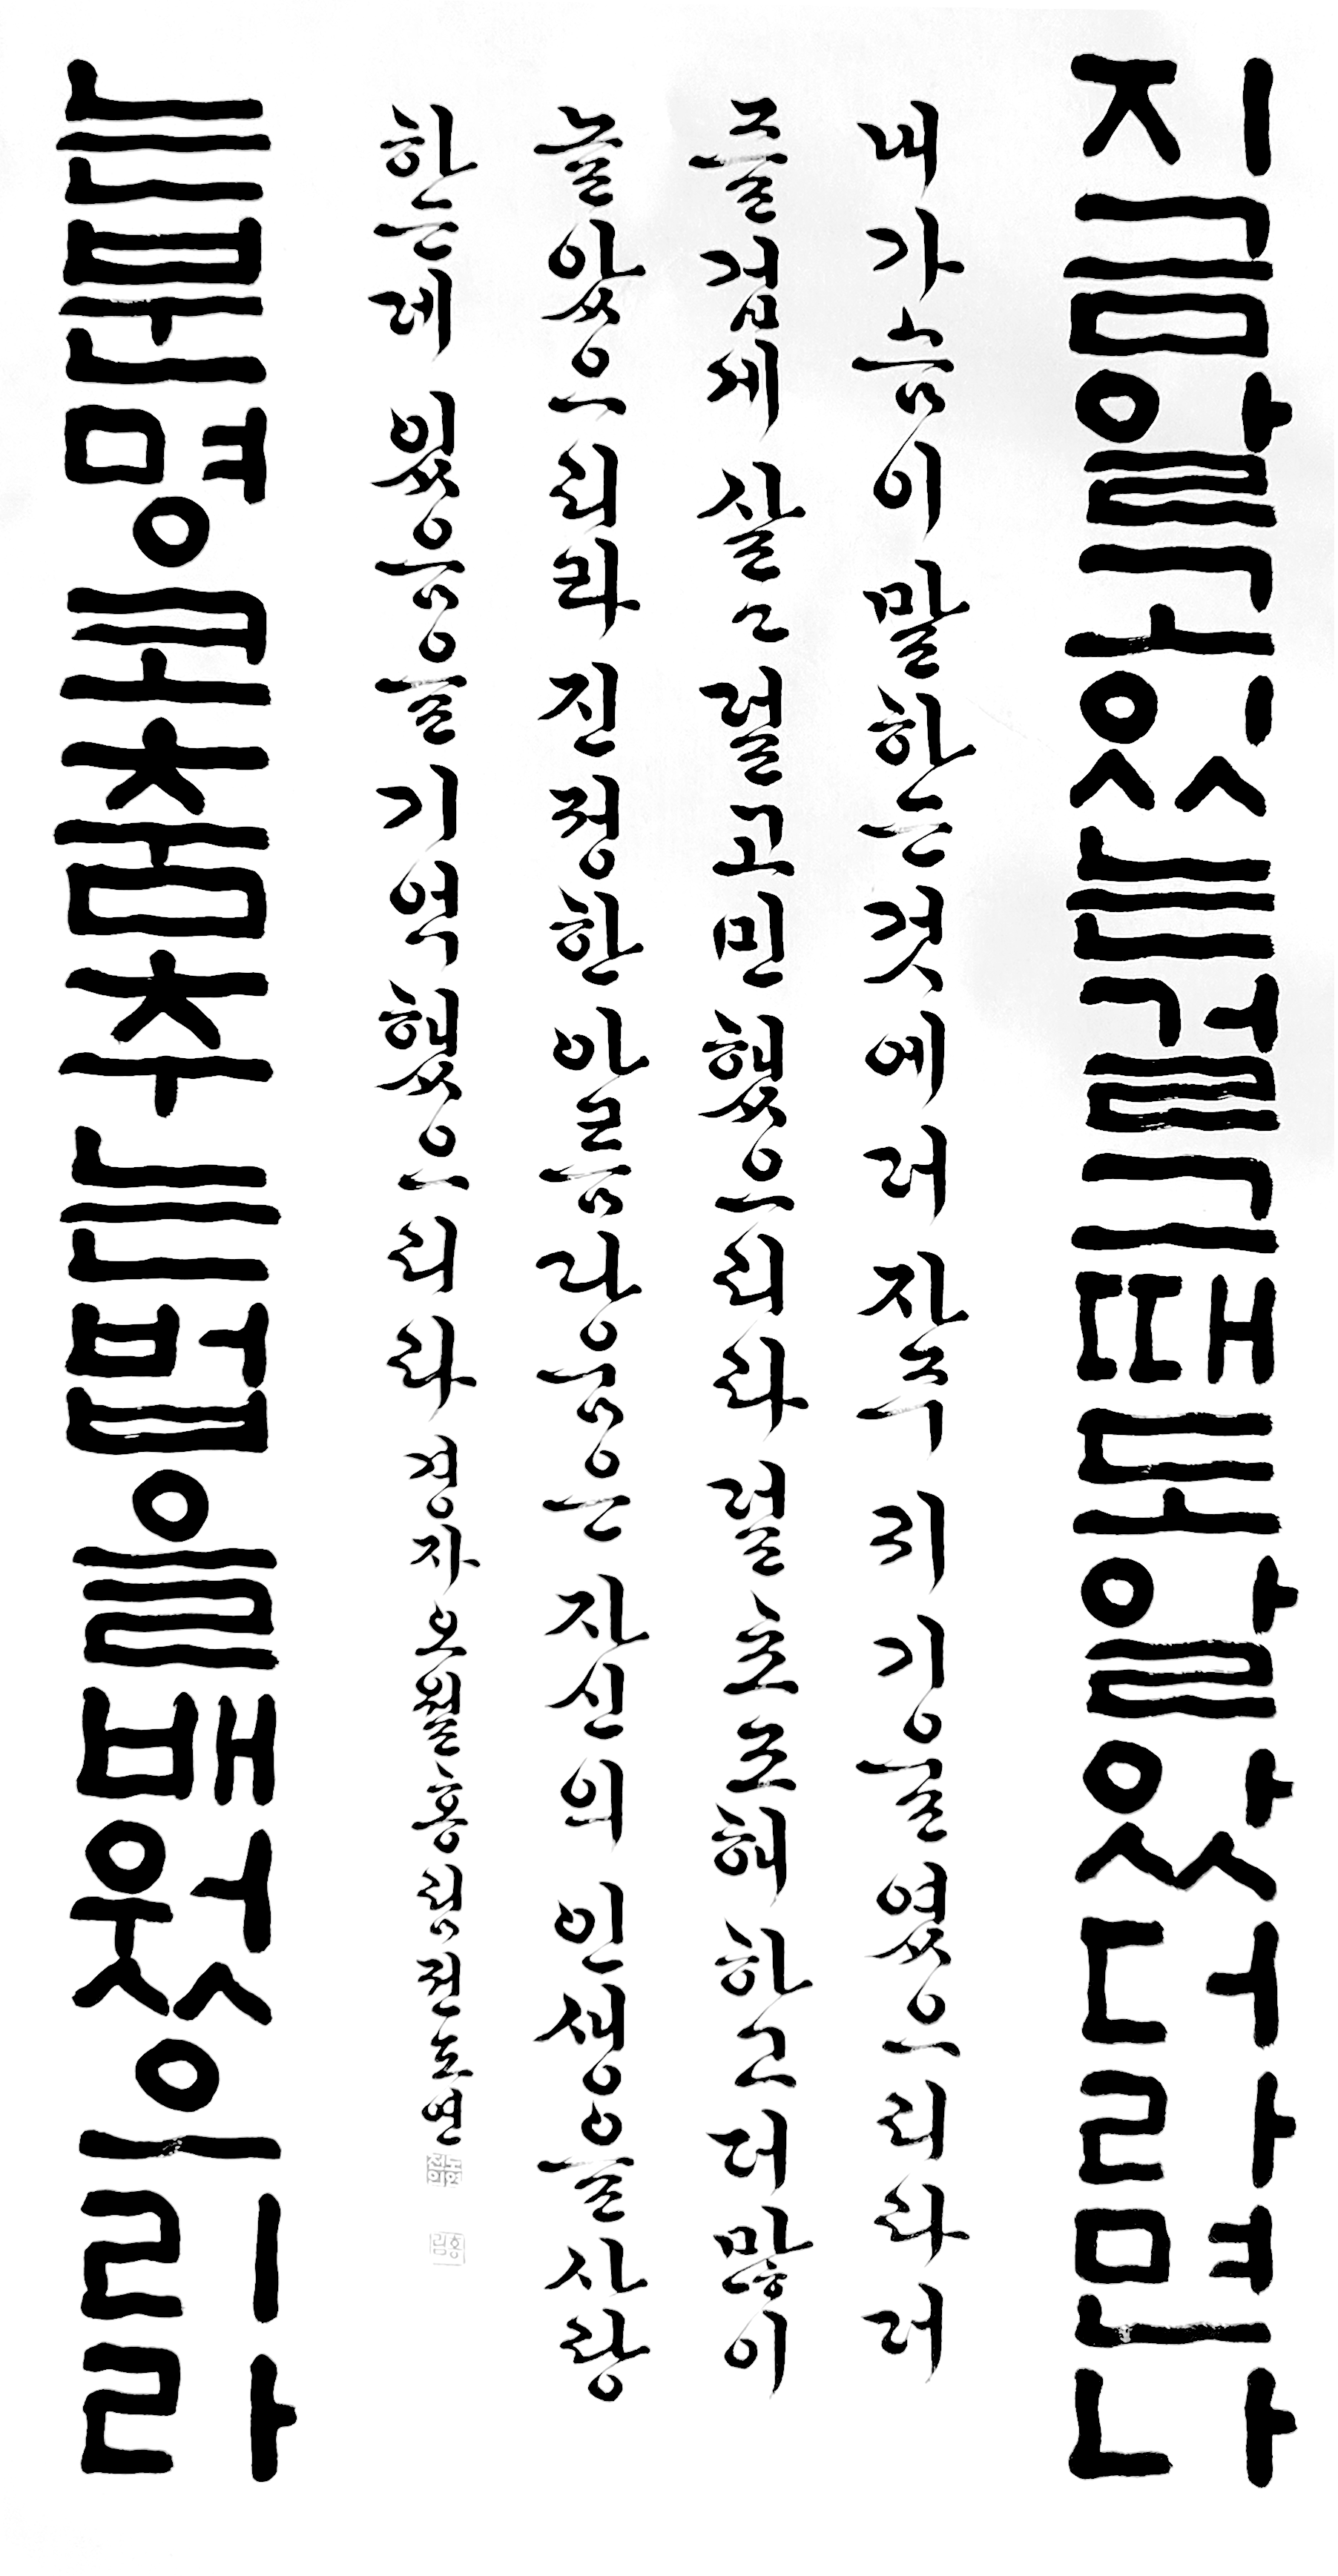 지금알고있는걸그때도알았더라면나
는분명코춤추는법을배웠으리라
내가슴이말하는것에더자주귀기울였으리라더
즐겁게살고덜고민했으리라덜초조해하고더많이
놀았으리라진정한아름다움은자신의인생을사랑
하는데있음을기억했으리라경자오월홍림전도연
홍림